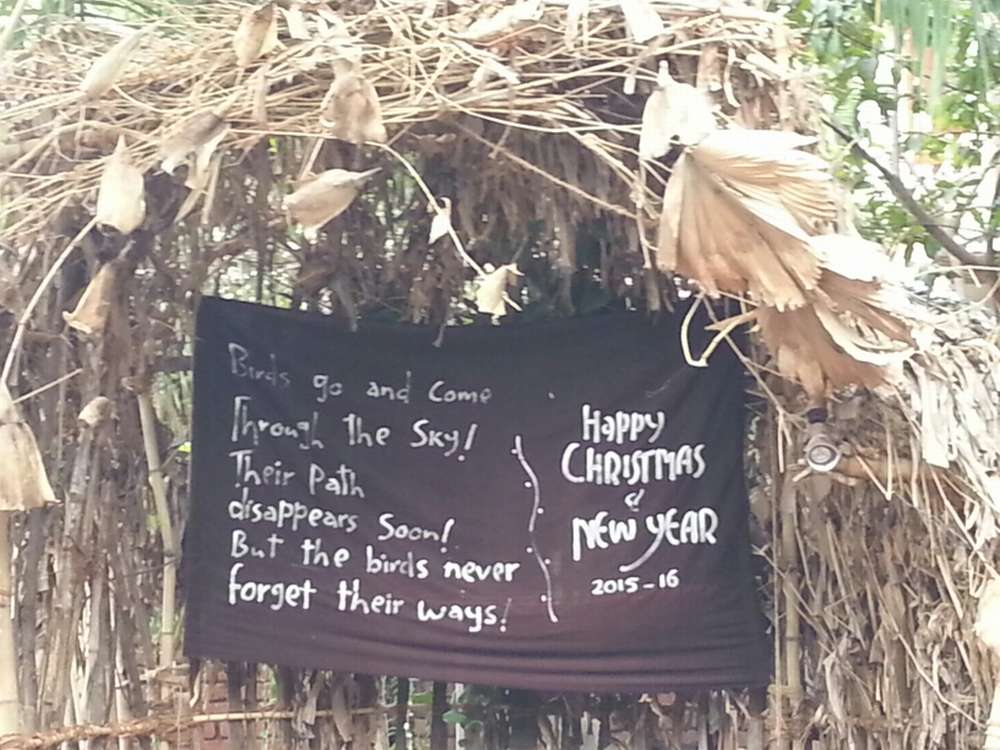 Birds go and Come
Through the Sky!
Their Path
disappears Soon!
But the birds never
forget their ways!
Happy
CHRISTMAS
&
NEW YEAR
2015-16